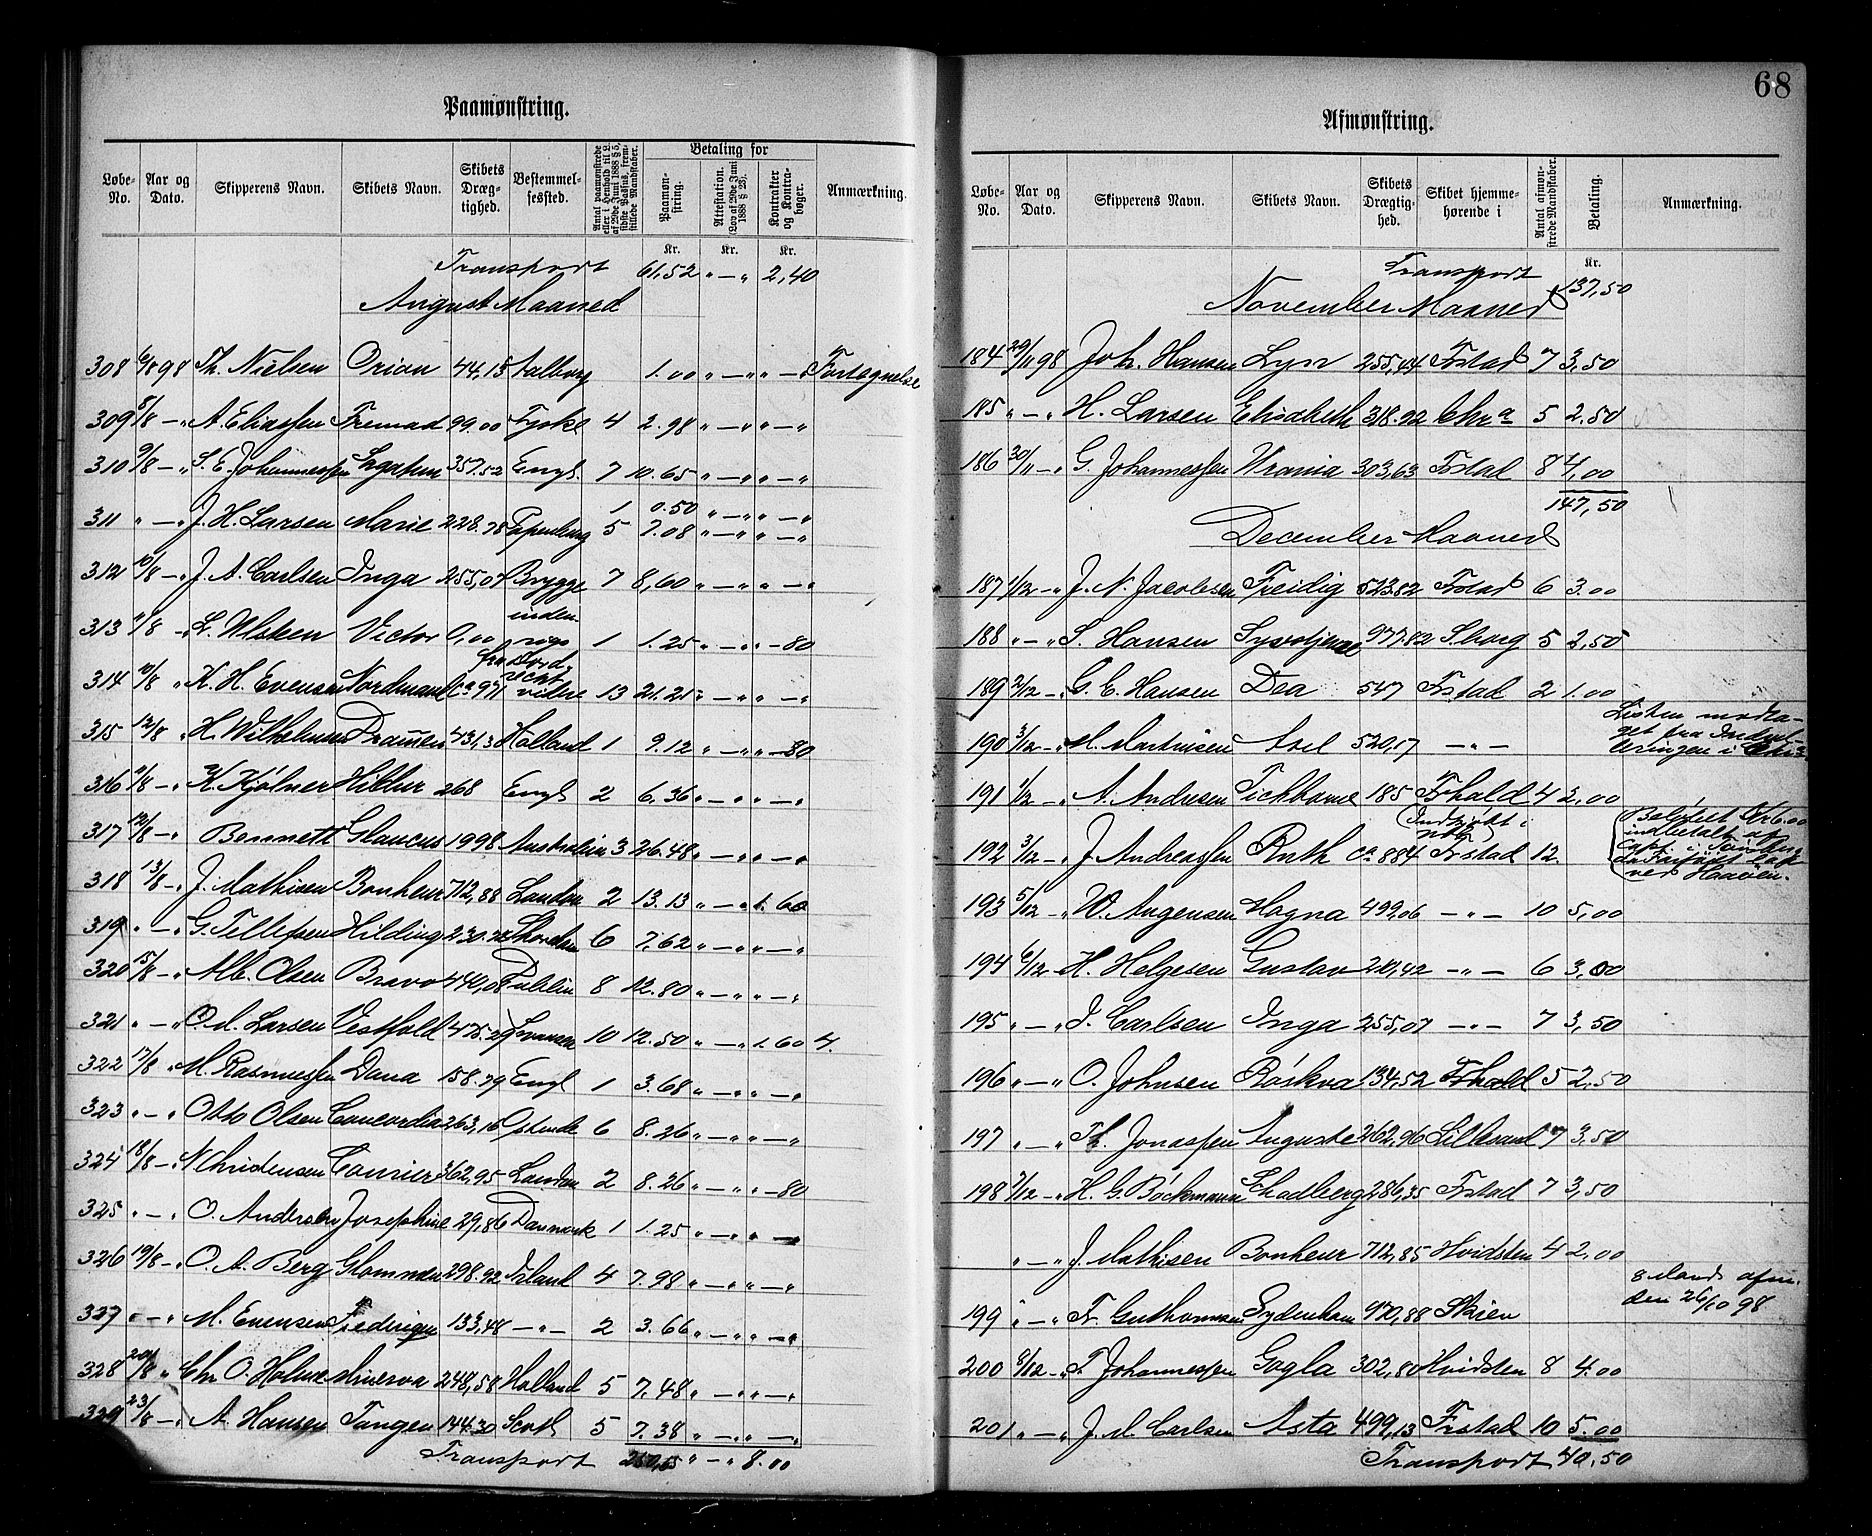 Paamønstring.
Løbe-No. Aar og Dato. Skipperens Navn. Skibets Navn. Skibets Dræg-tighed. Bestemmel-sessted. Antal paamønstrede eller i Henhold til L. af 29de Juni 1888 § 5, sidste Passus, frem-stillede Mandskaber. Betaling for Paamøn-string. Attestation. (Lov af 29de Juni 1888 § 23). Kontrakter og Kontra-bøger. Anmærkning.
Kr. Kr. Kr.
Transport 61,52 " — " 2,40
August Maaned
308 6/8 98 Th. Nielsen Orion 44,15 Aalborg 1.00 " — " " — " Fortegnelse
309 8/8 — " A. Eliassen Fremad 99.00 Tyskl 4 2.98 " — " " — "
310 9/8 — " S. E. Johannessen 357.52 Engl. 7 10.65 " — " " — "
1 0.50 " — " " — "
311 " — " J. H. Larsen Marie 228.78 Papenburg 5 7.08 " — " " — "
312 10/8 — " J. A. Carlsen Inga 255,07 Brygge 7 8,60 " — " " — "
313 11/8 — " L. Ulsken Victor 0,00 inden-rigs 1 1.25 " — " " — 80
314 10/8 " K. H. Evensen Nordmand ca 971 fra Dord-recht videre 13 21.21 " — " " — "
315 12/8 " H. Wilhelmsen Dramen 431,3 Holland 1 9.12 " — " " — 80
316 11/8 — " K. Kjølner 268 Engl 2 6.36 " — " " — "
317 12/8 — " Bennett Glaucus 1998 Australien 3 26.48 " — " " — "
318 13/8 — " J. Mathisen Bonheur 712,88 London 2 13.13 " — " 1.60
319 " — " G. Tellefsen Hilding 230.72 6 7,62 " — " " — "
320 15/8 — " Alb. Olsen Bravo 440,08 Dublin 8 12.80 " — " " — "
321 " — " O. M. Larsen Vestfold 475.29 10 12.50 " — " 1.60 4.
322 17/8 " M. Rasmussen Dana 158.79 Engl 1 3.68 " — " " — "
323 " — " Otto Olsen Concordia 263,16 Ostende 6 8.26 " — " " — "
324 18/8 — " N Christensen Courier 362,95 London 2 8.26 " — " " — 80
325 " — " O. Andersen Josephine 29,86 Danmark 1 1.25 " — " " — "
326 19/8 — " O. A. Berg Glommen 298.92 Irland 4 7.98 " — " " — "
327 " — " M. Evensen 133,48 — " — 2 3.66 " — " " — "
328 20/8 " Chr O. Holme Minerva 248,58 Holland 5 7.48 " — " " — "
329 23/8 — " A. Hansen Tangen 144.30 Scotl 5 7.38 " — " " — "
Transport " — " 8.00
68
Afmønstring.
Løbe-No. Aar og Dato. Skipperens Navn. Skibets Navn. Skibets Drægtig-hed. Skibet hjemme-hørende i Antal afmøn-strede Mandskaber. Betaling. Anmærkning.
Kr.
Transport 137,50
November Maaned
184 29/11 98 Joh. Hansen Lyn 255,44 Fstad 7 3,50
185 " — " H. Larsen Elisabeth 318.92 Chra 5 2.50
186 30/11 — " G. Johannessen Urania 303,63 Fstad 8 4,00
147,50
December Maaned
187 1/12 — " J. N. Jacobsen Freidig 523.82 Fstad 6 3.00
188 " — " S. Hansen Syvstjernen 977.82 S.borg 5 2,50
189 2/12 — " G. E. Hansen Dea 547 Fstad 2 1.00
190 3/12 — " M. Martinsen Axel 520,17 — " — Listen modta-get fra Indrul-leringen i Chra
191 1/12 — " A. Andresen Tichborne 185 Frhald 4 2,00
192 3/12 — " J. Andreassen Ruth ca 884 Fstad 12. (Indbragt i ) (Beløbet Kr 6.00 indbetalt af
193 5/12 — " W. Augensen Hogna 499,06 — " — 10 5,00
194 6/12 — H. Helgesen Gustav 210,42 — " — 6 3,00
195 " — " J. Carlsen Inga 255,07 — " — 7 3,50
196 " — " O. Johnsen Röskva 134,52 Frhald 5 2.50
197 " — " Th. Jonassen Auguste 262,96 Lillesand 7 3,50
198 7/12 — " H. G. Böckmann Schadberg 286,35 Fstad 7 3,50
" — " J. Mathisen Bonheur 712,85 Hvidsten 4 2,00
199 " — " Fr. Guthormsen Sydenham 470,88 Skien 8 Mands afm. den 26/10 98
200 8/12 — " T. Johannessen Gogla 302,80 Hvidsten 8 4.00
201 " — " J. M. Carlsen Asta 499,13 Frstad 10 5.00
Transport 40.50